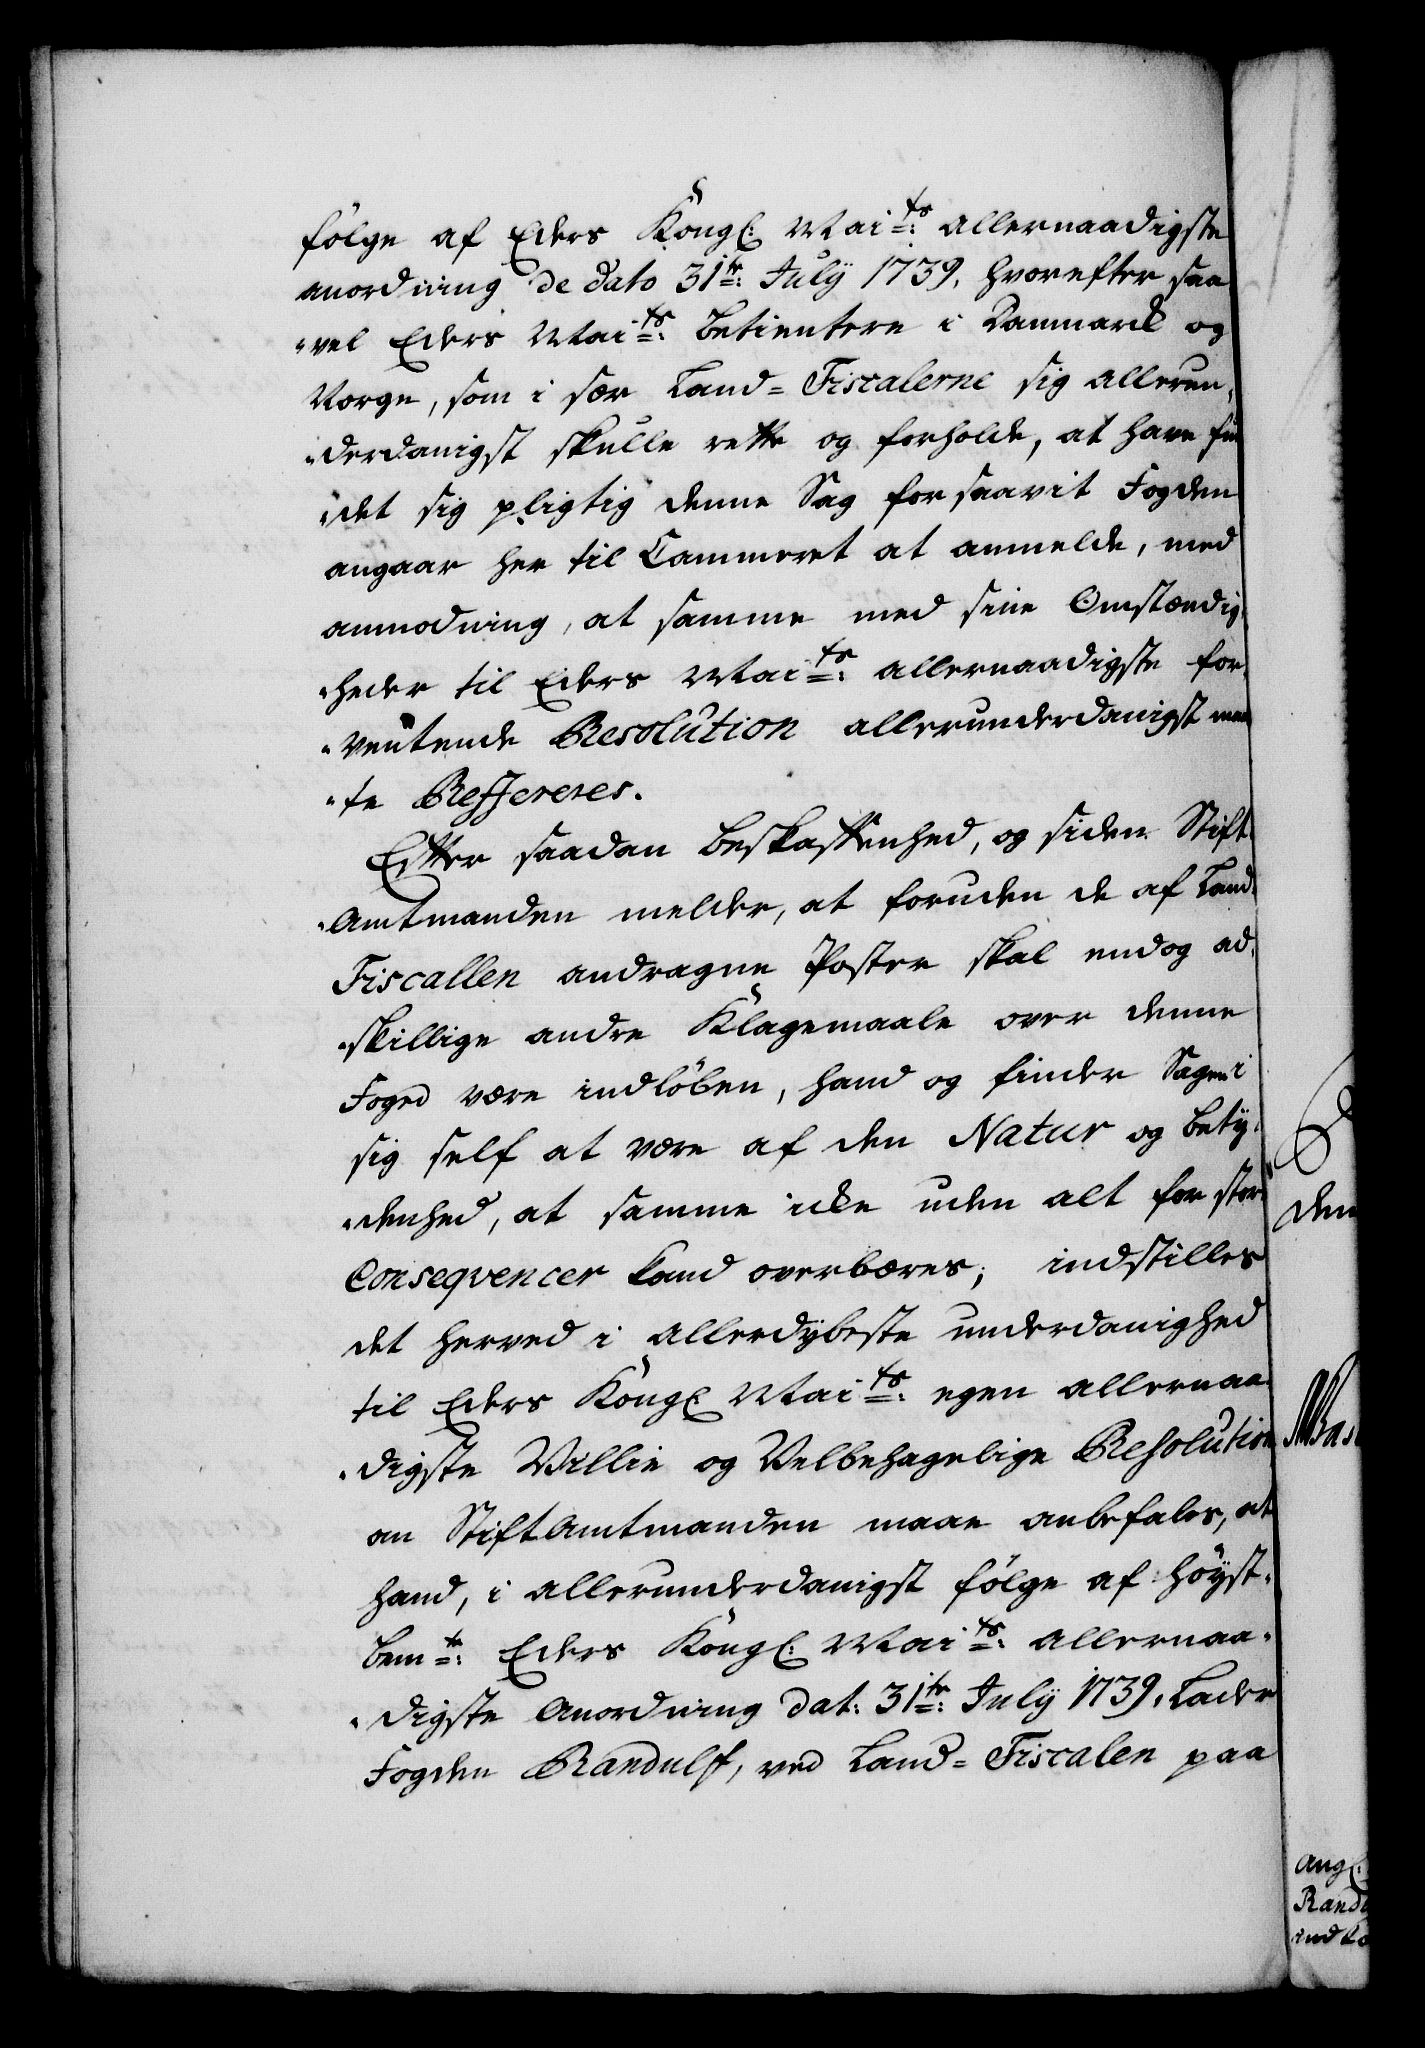 følge af Eders Kongl: Mai:ts allernaadigste
anordning de dato 31te: Julÿ 1739. hvorefter saa
„vel Eders Mai:ts Betientere i Danmarck og
Norge, som i sær Land=Fiscalerne sig allerun„
„derdanigst skulle rette og forholde, at have fun
„det sig pligtig denne Sag forsaavit Fogden
angaar her til Cammeret at anmelde, med
anmodning, at samme med sine Omstændig„
„heder til Eders Mai:ts allernaadigste for„
„ventende Resolution allerunderdanigst maa„
„te Refereres.
Efter saadan beskaffenhed, og siden Stift„
„Amtmanden melder, at foruden de af Land
Fiscallen andragne Poster skal endog ad„
„skillige andre Klagemaale over denne
Foged være indløben, hand og finder Sagen i
sig self at være af den Natur og betÿ„
„denhed, at samme icke uden alt for stor
Conseqvencer kand overbæres; indstilles
det herved i allerdÿbeste underdanighed
til Eders Kongl: Mai:ts egen allernaa„
„digste Villie og Velbehagelige Resolution
an StiftAmtmanden maae anbefales, at
hand, i allerunderdanigst følge af höÿst„
bemte: Eders Kongl: Mai:ts allernaa„
„digste Anordning dat: 31te: Julÿ 1739. Lader
Fogden Randulff, ved Land=Fiscalen paa
den
Ang: